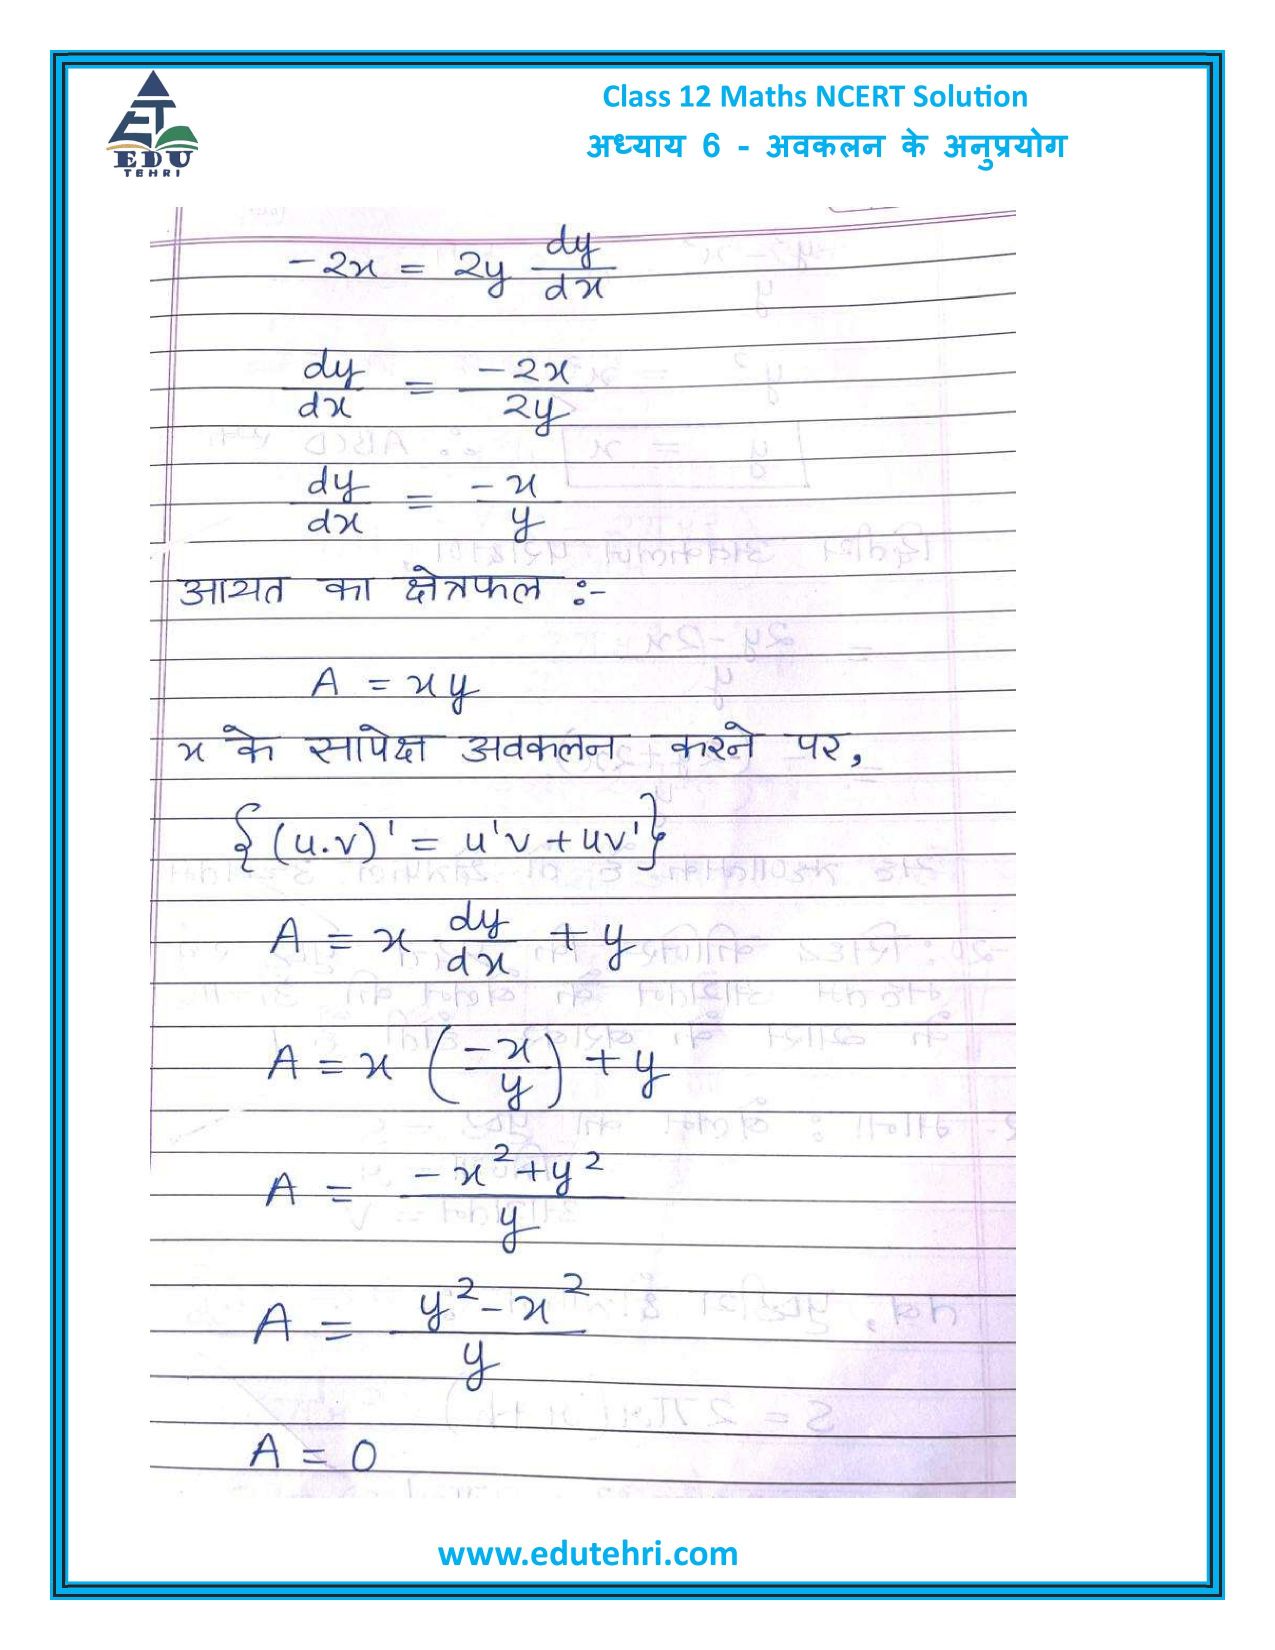 ET
EDU
TEHRI
Class 12 Maths NCERT Solution
अध्याय 6 - अवकलन के अनुप्रयोग
-2x = 2y dy/dx
dy/dx = -2x/2y
dy/dx = -x/y
आयत का क्षेत्रफल :-
A = xy
x के सापेक्ष अवकलन करने पर,
{(u.v)' = u'v + uv'}
A = x dy/dx + y
A = x (-x/y) + y
A = -x²+y²/y
A = y²-x²/y
A = 0
www.edutehri.com